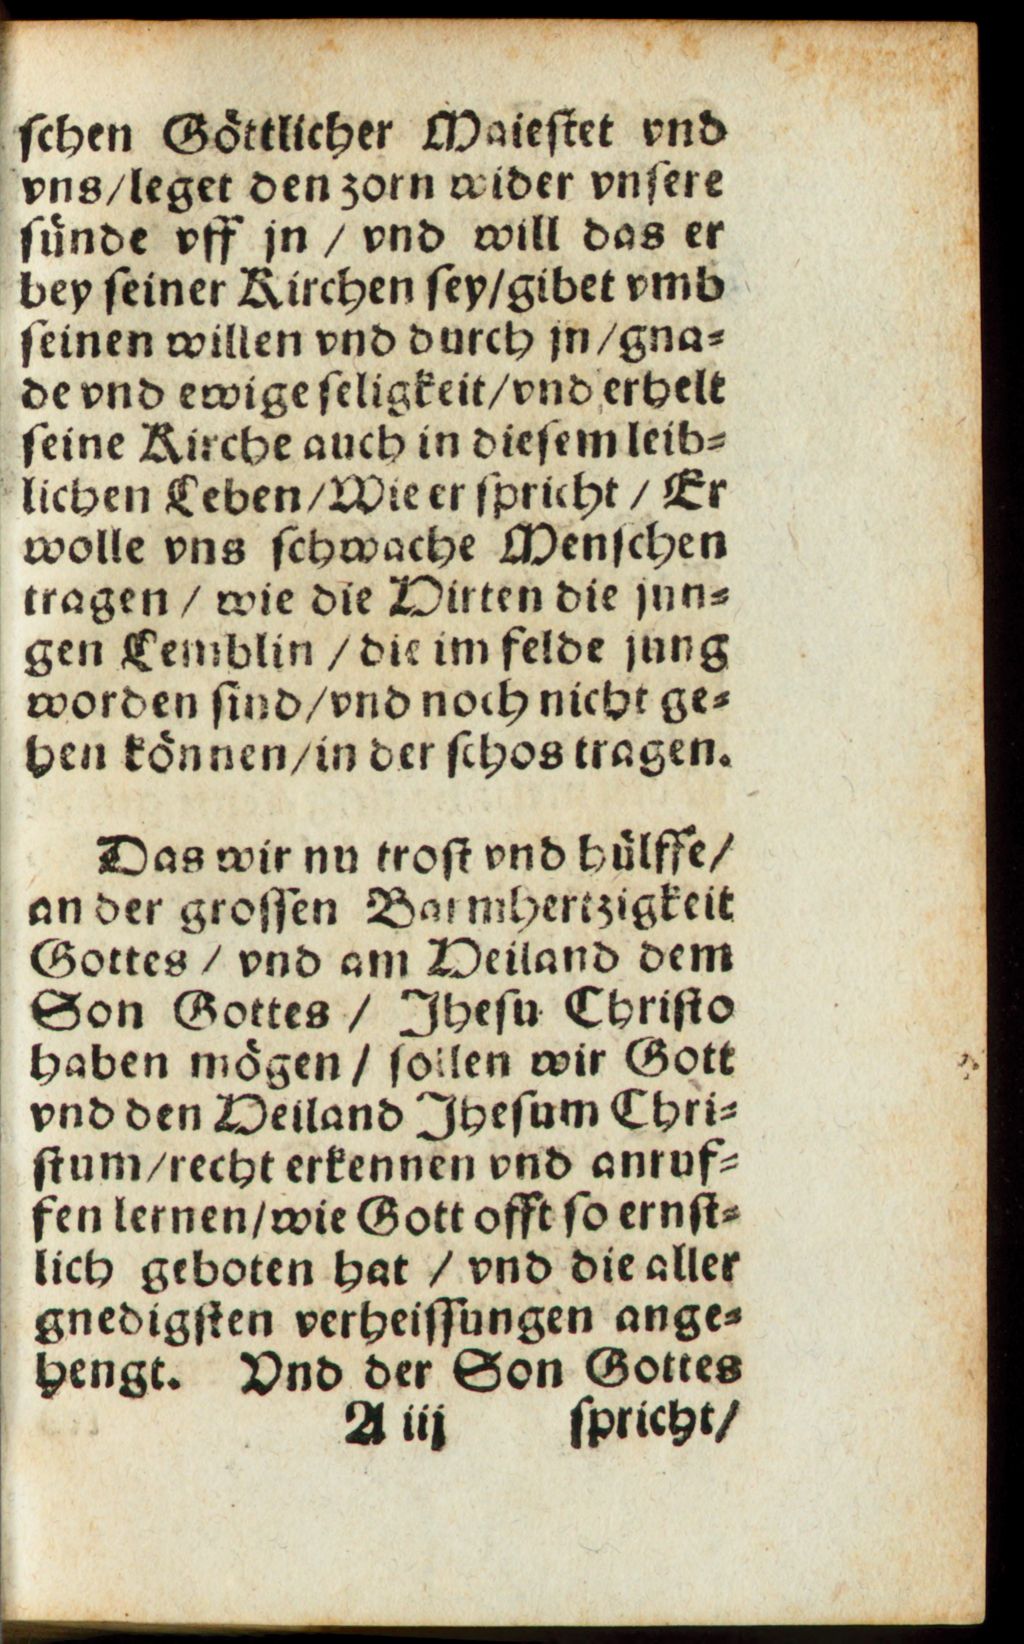 schen Göttlicher Maiestet vnd
vns/leget den zorn wider vnsere
sünde vff jn / vnd will das er
bey seiner Kirchen sey/gibet vmb
seinen willen vnd durch jn/gna⸗
de vnd ewige seligkeit/vnd erhelt
seine Kirche auch in diesem leib⸗
lichen Leben/Wie er spricht / Er
wolle vns schwache Menschen
tragen / wie die Hirten die jun⸗
gen Lemblin / die im felde jung
worden sind/vnd noch nicht ge⸗
hen können/in der schos tragen.
Das wir nu trost vnd hülffe/
an der grossen Barmhertzigkeit
Gottes / vnd am Heiland dem
Son Gottes / Jhesu Christo
haben mögen / sollen wir Gott
vnd den Heiland Jhesum Chri⸗
stum/recht erkennen vnd anruf⸗
fen lernen/wie Gott offt so ernst⸗
lich geboten hat / vnd die aller
gnedigsten verheissungen ange⸗
hengt. Vnd der Son Gottes
A iij spricht/